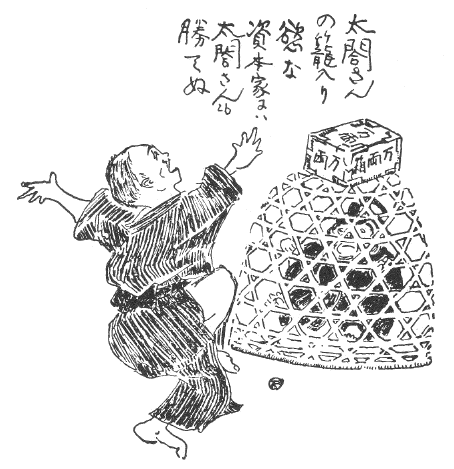 太閤さん
の籠入り
慾な
資本家には
太閤さんも
勝てぬ
万両箱
万両